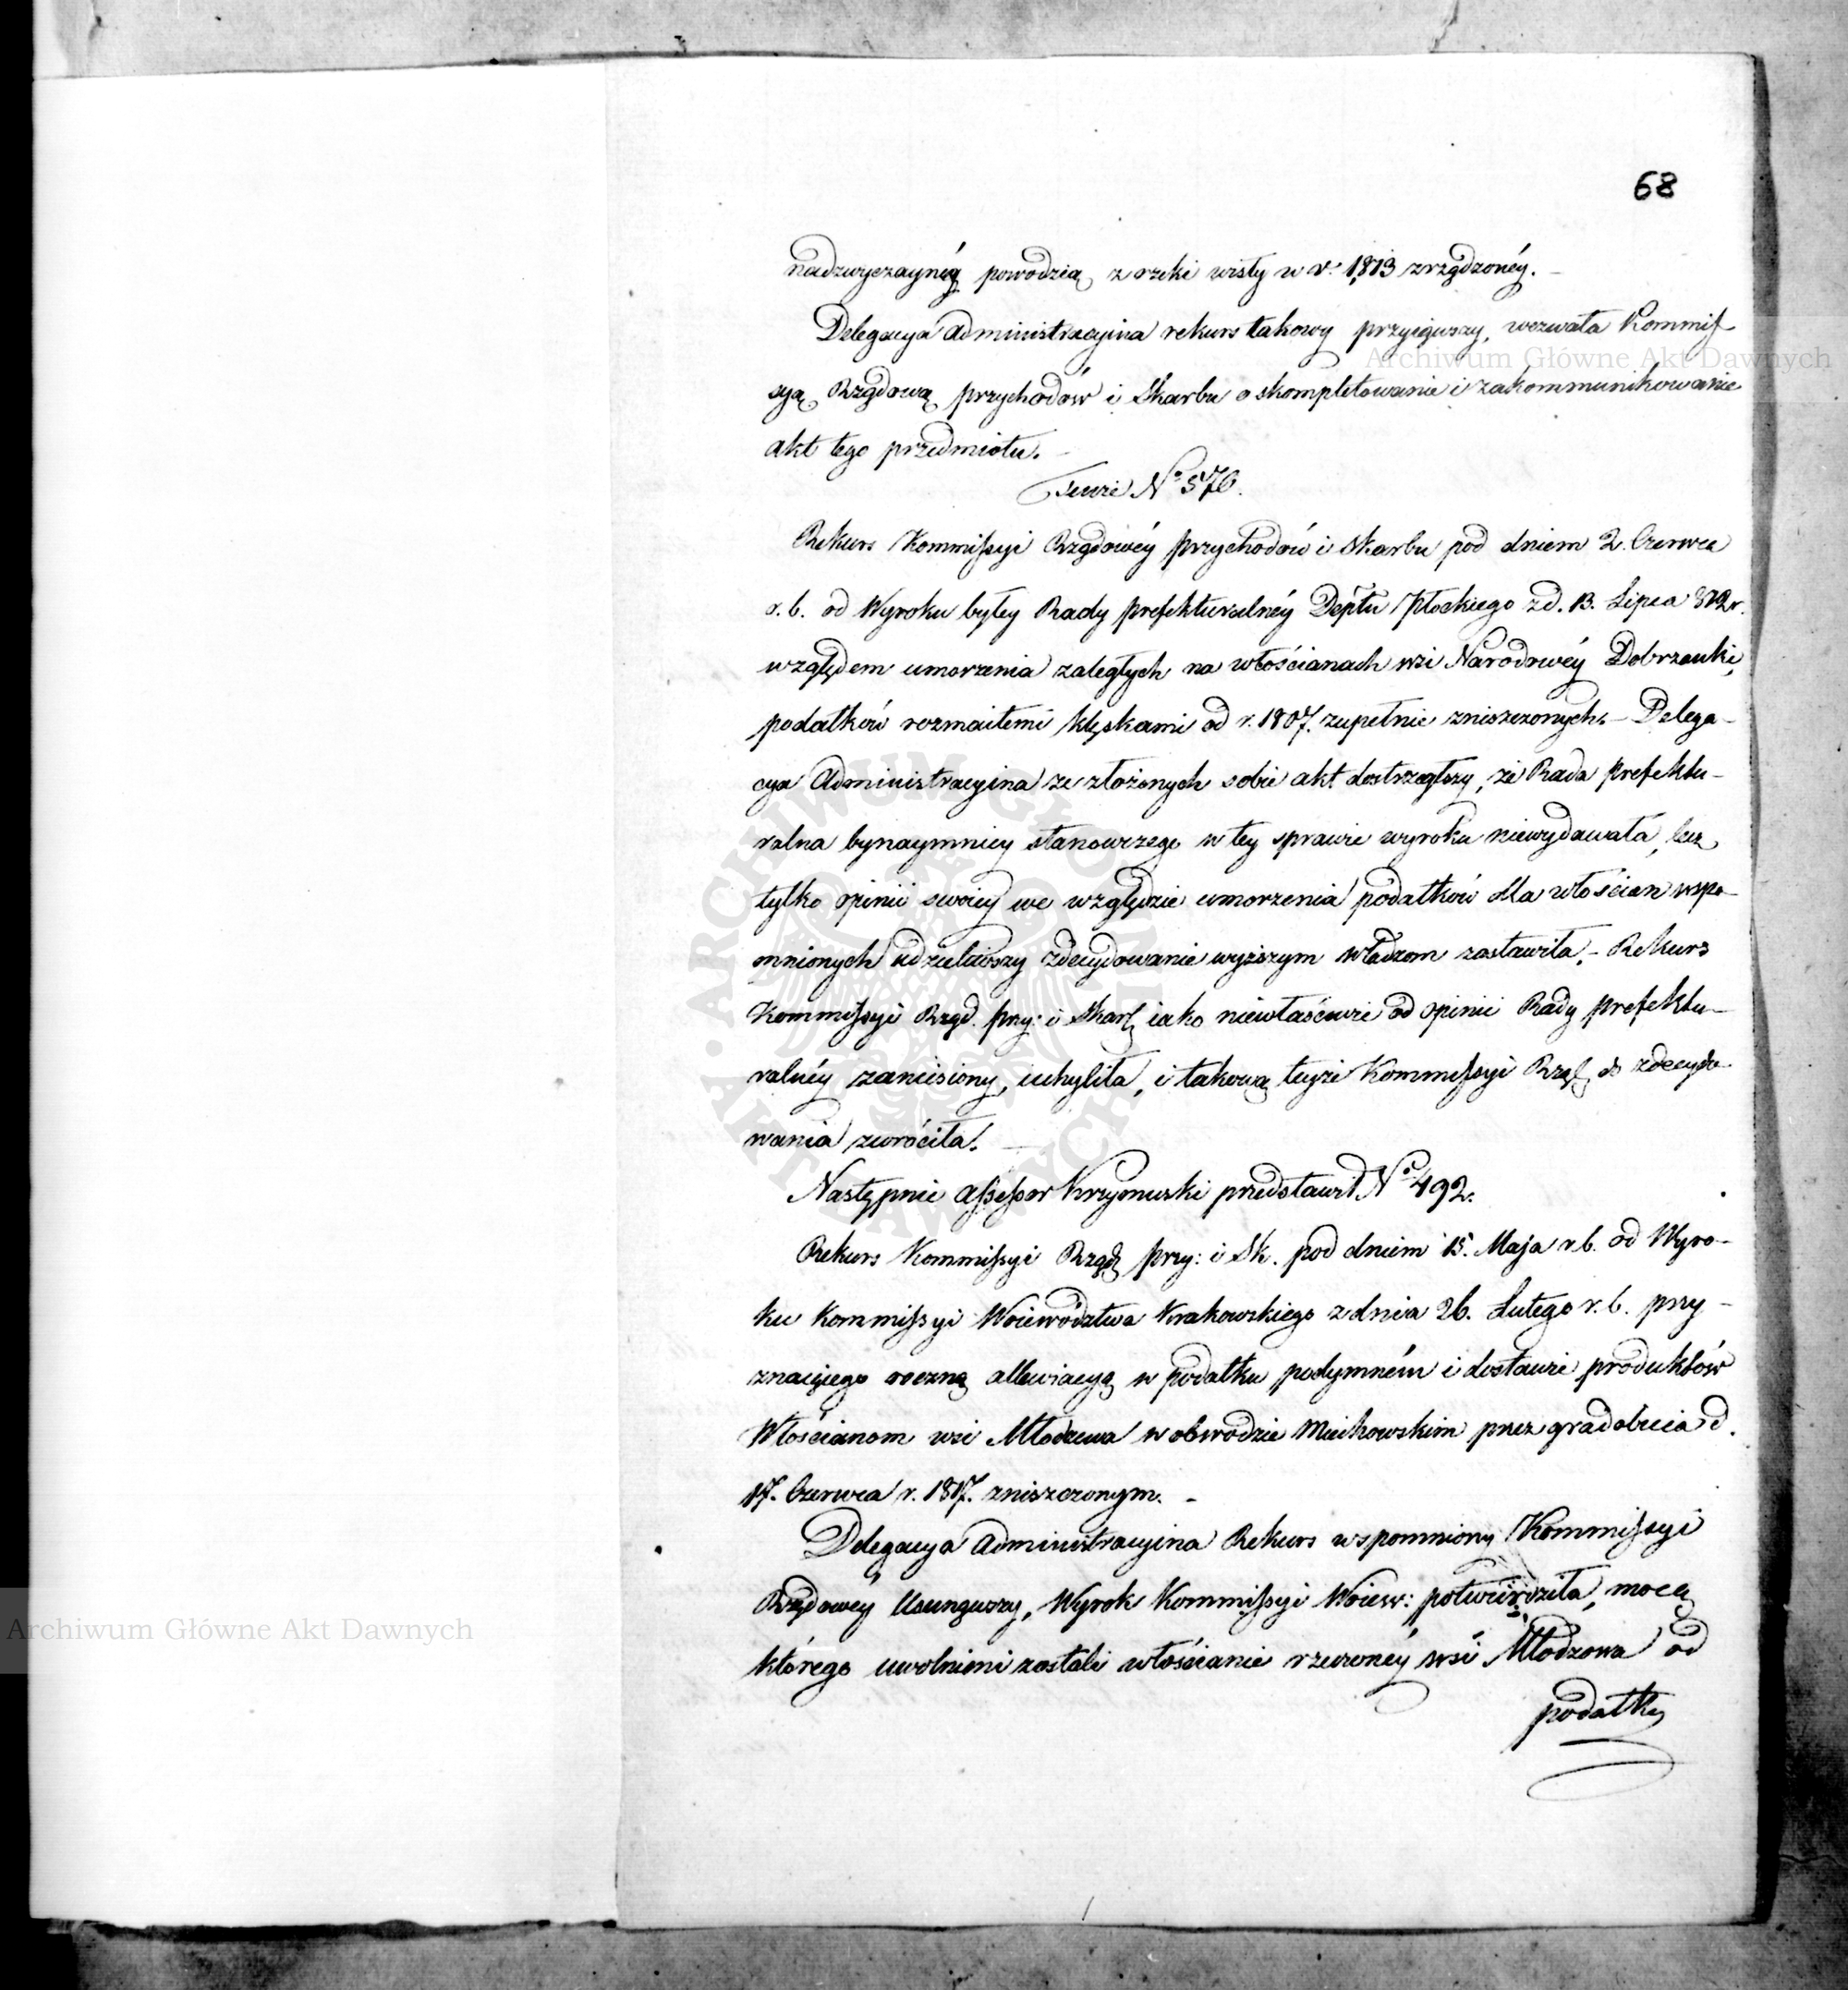 68
nadzwyczayną powodzią z rzeki wisły w r. 1813 zrządzonéy. –
Delegacya Administracyina rekurs takowy przyiąwszy, wezwała Kommis-
syą Rządową przychodów i Skarbu o skompletowanie i zakommunikowanie
akt tego przedmiotu. –
Tenże Nº 576.
Rekurs Kommissyi Rządowéy przychodów i Skarbu pod dniem 2. Czerwca
r. b. od Wyroku byłey Rady prefekturalnéy Deptu Płockiego z d. 13. Lipca 812 r.
względem umorzenia zaległych na włościanach wsi Narodowéy Dobrzanki,
podatków rozmaitemi klęskami od r. 1807. zupełnie zniszczonych. – Delega-
cya Administracyina ze złożonych sobie akt dostrzegłszy, że Rada prefektu-
ralna bynaymniey stanowczego w tey sprawie wyroku niewydawała, lecz
tylko opinii swoiey we względzie umorzenia podatków dla włościan wspo-
mnionych udzieliwszy zdecydowanie wyższym władzom zostawiła. – Rekurs
Kommissyi Rząd. przy: i Skar. iako niewłaściwie od opinii Rady prefektu-
ralnéy zaniesiony, uchyliła, i takową teyże Kommissyi Rząd. do zdecydo-
wania zwróciła. –
Następnie Assessor Krzymuski przedstawił Nº 492.
Rekurs Kommissyi Rządo. przy: i Sk. pod dniem 15. Maja r. b. od Wyro-
ku Kommissyi Woiewództwa Krakowskiego z dnia 26. Lutego r. b. przy-
znaiącego roczną allewiacyą w podatku podymném i dostawie produktów
Włościanom wsi Młodzowa w obwodzie Miechowskim przez gradobicia d.
17. Czerwca r. 1817. zniszczonym. –
Delegacya Administracyina Rekurs wspomniony Kommissyi
Rządowéy Usunąwszy, Wyrok Kommissyi Woiew: potwierdziła, mocą
którego uwolnieni zostali włościanie rzeczonéy wsi Młodzowa od
podatku
Archiwum Główne Akt Dawnych
Archiwum Główne Akt Dawnych
ARCHIWUM GŁÓWNE AKT DAWNYCH W WARSZAWIE